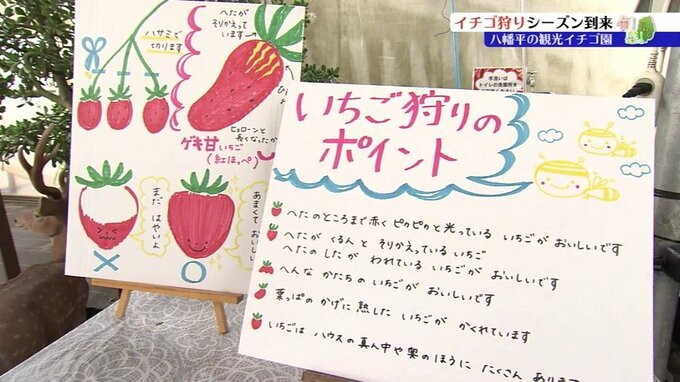 イチゴ狩りシーズン到来
八幡平の観光イチゴ園
ハサミで
てかります
へたが
そりかえって
います
ヒョローンと
長くなったか
ゲキ甘いちご
(紅ほっぺ)
まだ
はやいよ
あまくて
おいしい
×
○
手洗いは
いちご狩りの
ポイント
へたのところまで赤く ピカピカと光っている いちごが おいしいです
へたが くるんと そりかえっている いちご
へたのしたが われている いちごが おいしいです
へんな かたちの いちごが おいしいです
葉っぱの かげに 熟した いちごが かくれています
いちごは ハウスの 真ん中や 奥のほうに たくさん あります